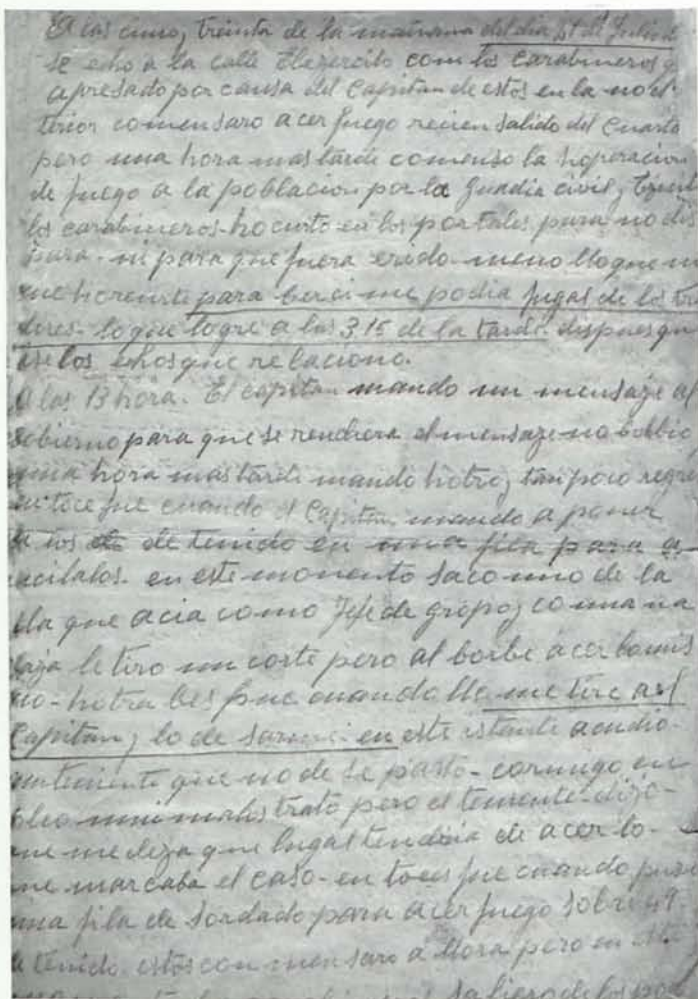 A las cinco y treinta de la mañana del dia 19 de Julio
se echo a la calle El egercito com los Carabineros y
apresado por causa del Capitan de estos en la no
terior comensaro a cer fuego recien salido del Cuarto
pero una hora mas tarde comenso la hoperacion
de fuego a la poblacion por la Guadia civil y
los carabineros hocurto en los portales para no
para ni para que fuera erido meno llo que
me hocurte para ber si me podia fugas de los
lo que logre a las 3.15 de la tarde dispues
los echos que relaciono.
A las 13 hora. El capitan mando un mensaze al
gobierno para que se rendiera el mensaze no bolbio
una hora mas tarde mando hotro y tanpoco regre
en toce fue cuando el Capitan mando a poner
a los de tenido en una fila para
en este momento saco uno de la
fila que acia como Jefe de gropo y co una na
baja le tiro un corte pero al borbe a cer lo mis
mo hotra bes fue cuando llo me tire al
Capitan y lo de sarme en este istante acudio
un teniente que no de se parto comigo en
pero el teniente dijo
que me deza que lugas tendria de a cer lo
me marcaba el caso en toces fue cuando puso
una fila de sordado para a cer fuego sobre 49
de tenido estos con mensaro a llora pero en
saliero de los